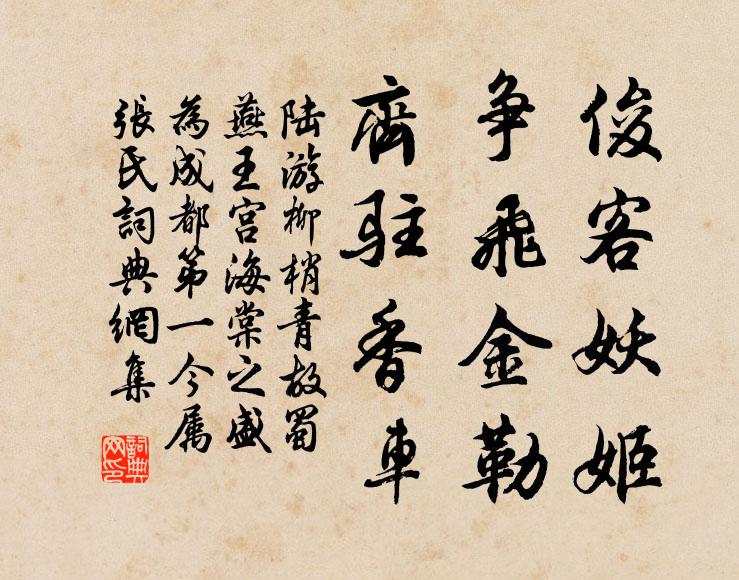 俊客妖姬
争飛金勒
齊駐香車
陆游柳梢青故蜀
燕王宫海棠之盛
為成都第一今属
張氏詞典網集
詞典网印